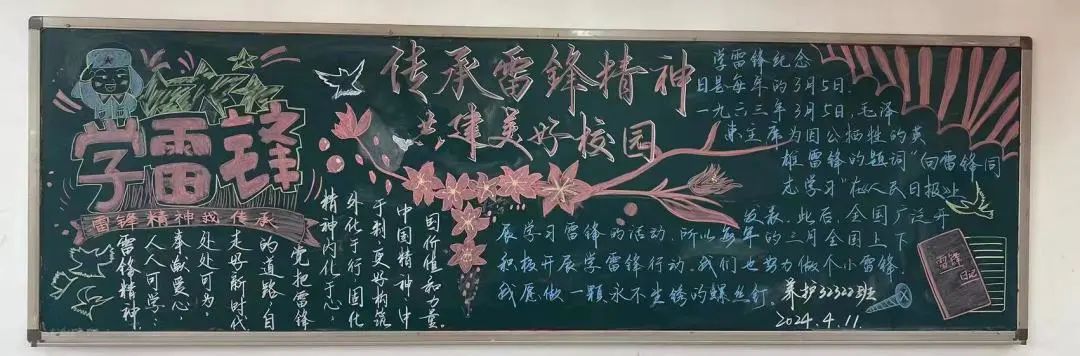 学雷锋
雷锋精神我传承
传承雷锋精神
共建美好校园
雷锋精神,
人人可学:
奉献爱心
处处可为:
走好新时代
的道路自
觉把雷锋
精神内化于心
外化于行 固化
于制更好构筑
中国精神、中
国价值和力量。
学雷锋纪念
日是每年的3月5日.
一九六三年3月5日,毛泽
东主席为因公牺牲的英
雄雷锋的题词“向雷锋同
志学习”在《人民日报》上
发表.此后,全国广泛开
展学习雷锋的活动.所以每年的三月全国上下
积极开展学雷锋行动.我们也努力做个小雷锋,
我愿做一颗永不生锈的螺丝钉.
养护32322班
2024.4.11
雷锋
日记